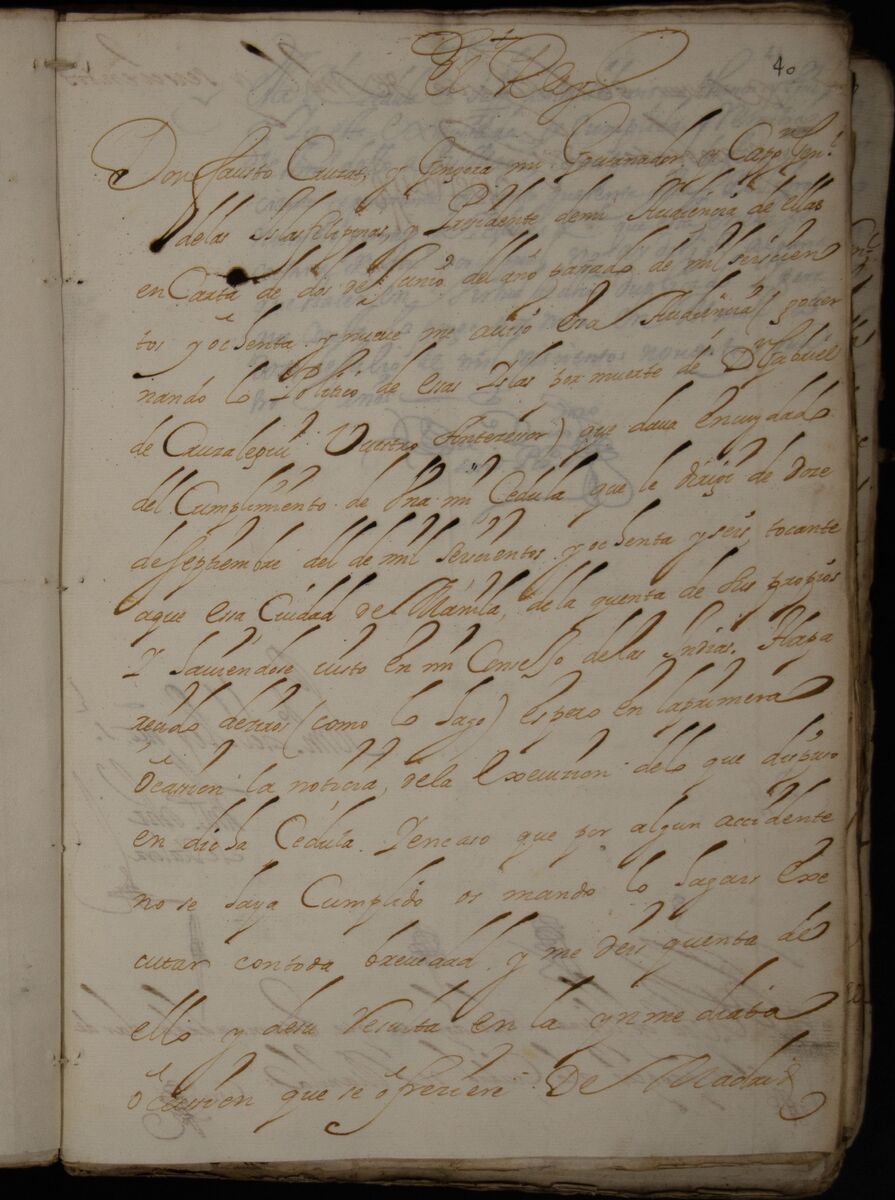 40
El Rey
Don fausto Cruzat, y Gongora mi Gouernador, y Capp.n Gen.l
delas Islas filipinas, y Presidente demi Audiencia de ellas
en Carta de dos de Junio del año pasado de mil seiscien
tos y ochenta y nueve me aviso esa Audiencia (gouer
nando lo Politico de esas Islas por muerte de D.n Gabriel
de Curuzalegui Vuestro Antecesor) que dava en
del Cumplimiento de Vna mi Cedula que le dirigi de doze
de Septiembre del de mil seiscientos y ochenta y seis, tocante
aque esa Ciudad de Manila, de la quenta de sus propios
Y haviendose visto en mi Consejo delas Indias.
(como lo hago) espero en laprimera
ocasion la noticia, dela Execucion dello que dispuso
en dicha Cedula. Yencaso que por algun accidente
no se haya Cumplido os mando lo hagais Exe
cutar contoda brevedad, y me deis quenta de
ello y desu resulta en la ynmediata
ocasion que se ofreciere De Madrid